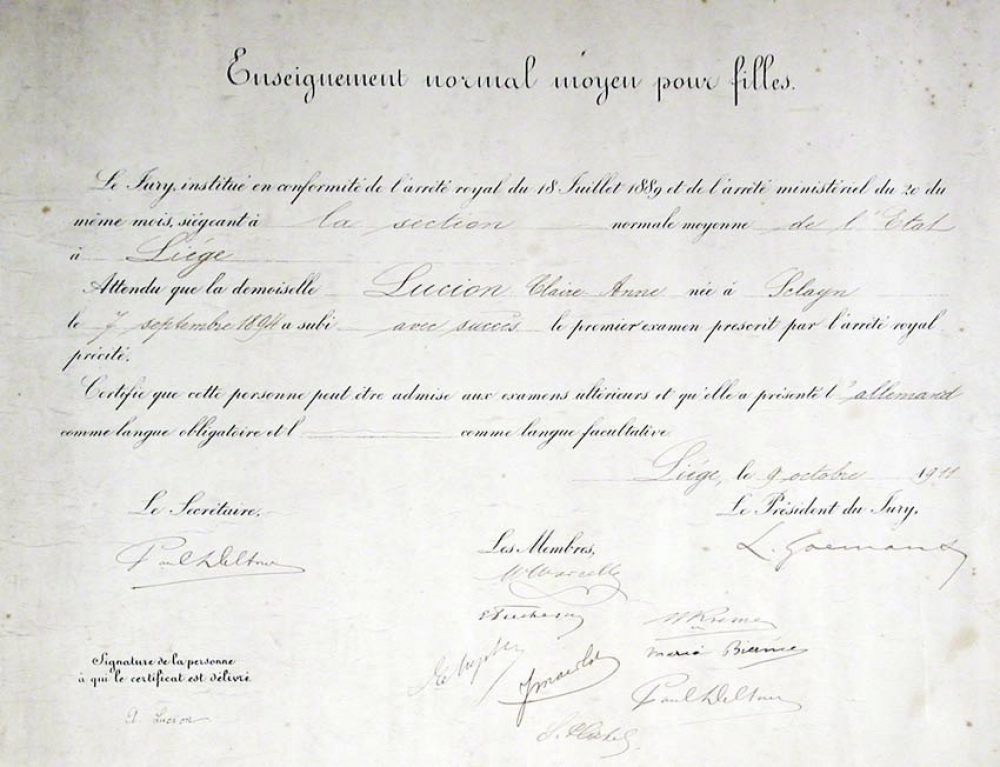 Enseignement normal moyen pour filles.
Le Jury, institué en conformité de l'arrêté royal du 18 Juillet 1889 et de l'arrêté ministériel du 20 du
même mois, siégeant à la section normale moyenne de l'Etat
à Liége
Attendu que la demoiselle Lucion Claire Anne née à Sclayn
le 7 septembre 1894 a subi avec succès le premier examen prescrit par l'arrêté royal
précité.
Certifie que cette personne peut être admise aux examens ultérieurs et qu'elle a présenté l'allemand
comme langue obligatoire et l comme langue facultative
Liége, le 9 octobre 1911
Le Secrétaire,
Le Président du Jury,
Les Membres,
Paul Deltour
Maria Bierme
Signature de la personne
à qui le certificat est délivré
Paul Deltour
Lucion